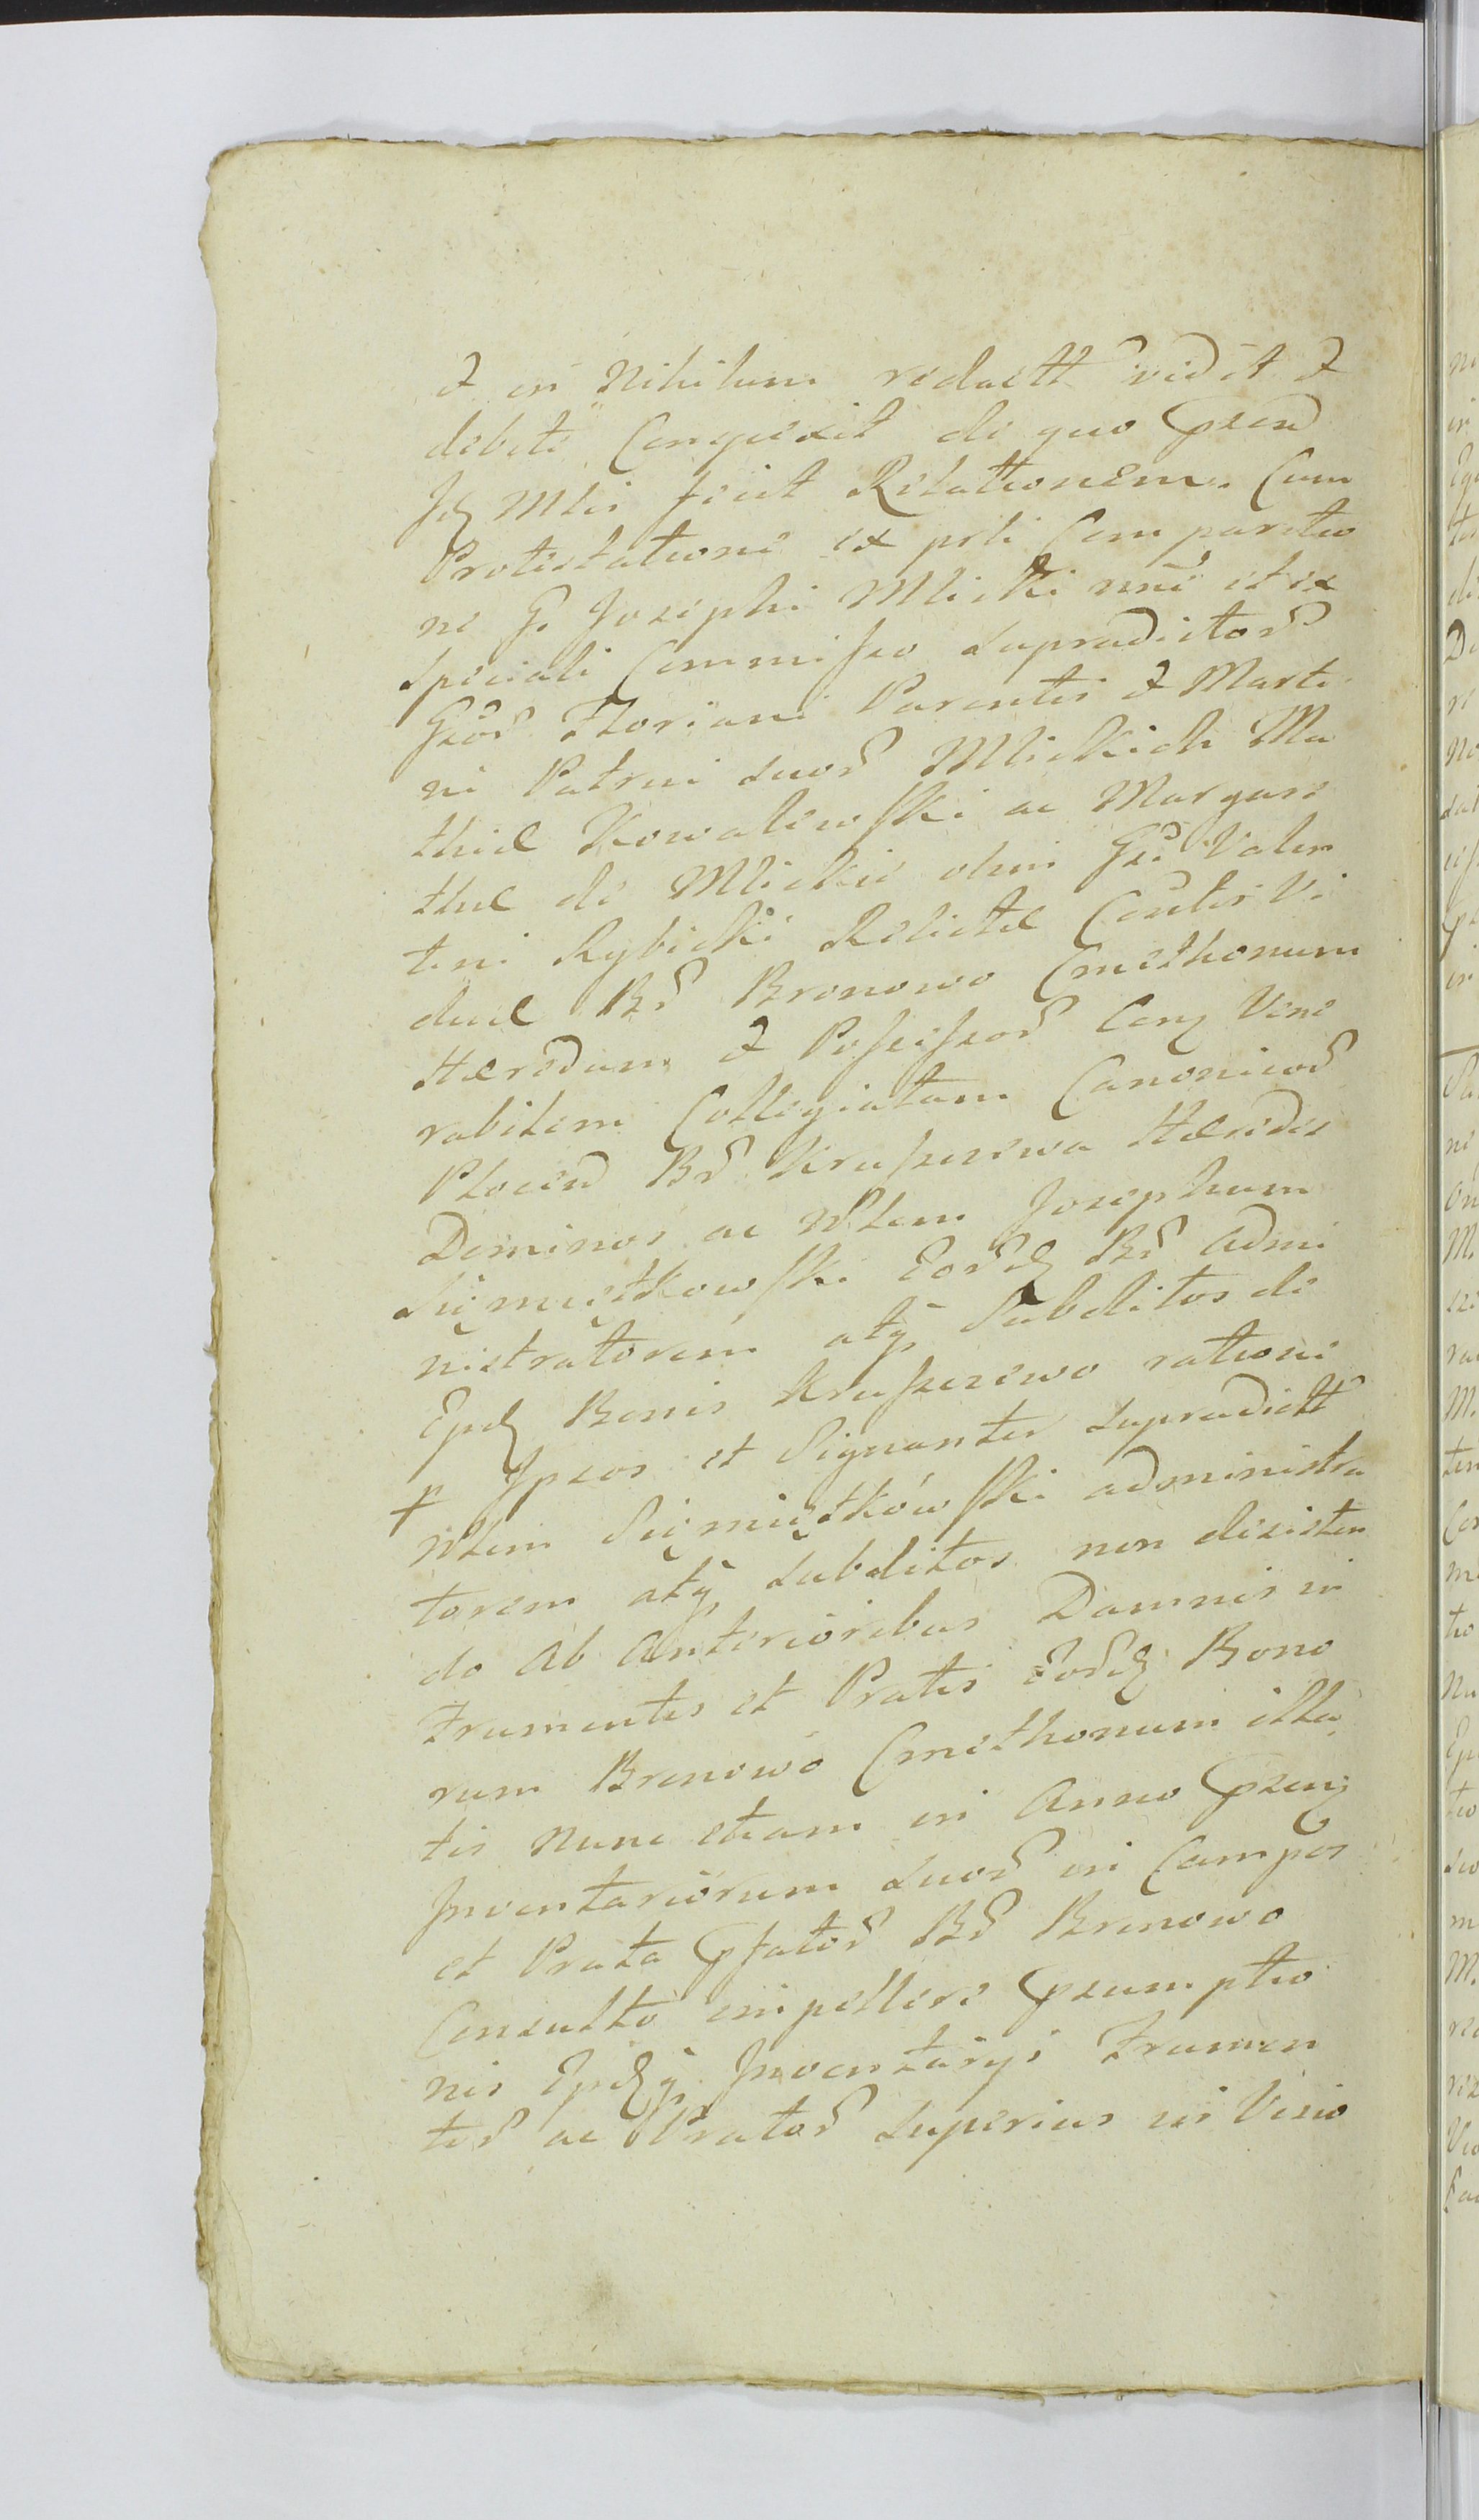 & in Nihilum redactt vidit &
debite Conspexit de quo Pzend
Idz Mlis fecit Relationem. Cum
Protestatione ex psli Comparitio
ne G. Josephi Mlicki nne et ex
Speciali Commisso Supradictor
Gsor Floriani Parentis & Marti
ni Patrui Suor Mlickich Ma
thiæ Kowalewski ac Margare
thæ de Mlickie olim Gsi Valen
tini Rybicki Relictæ Csultis Vi
duæ Br Bronowo Cmethonum
Hæredum & Possessor Cong Vene
rabilem Collegiatam Canonicor
Plocen Br Kruszczewa Hæredes
Dominos ac Nblem Josephum
Siemiętkowski Eordz Br Admi
nistratorem atq Subditos de
Ejsdz Bonis Kruszczewo ratione
p Ipsos et Signanter Supradictt
Nblem Siemiętkówski administra
torem atq Subditos non desisten
do ab Anterioribus Damnis in
Frumentis et Pratis Eordz Bono
rum Bronowo Cmethonum illa
tis Nunc etiam in Anno Pzenz
Inventariorum Suor in Campos
et Prata Pfator Br Bronowo
Consulto impellere Psumptio
nis Ejsdzq Inventarys Frumen
tor ac Prator Superius in Visio